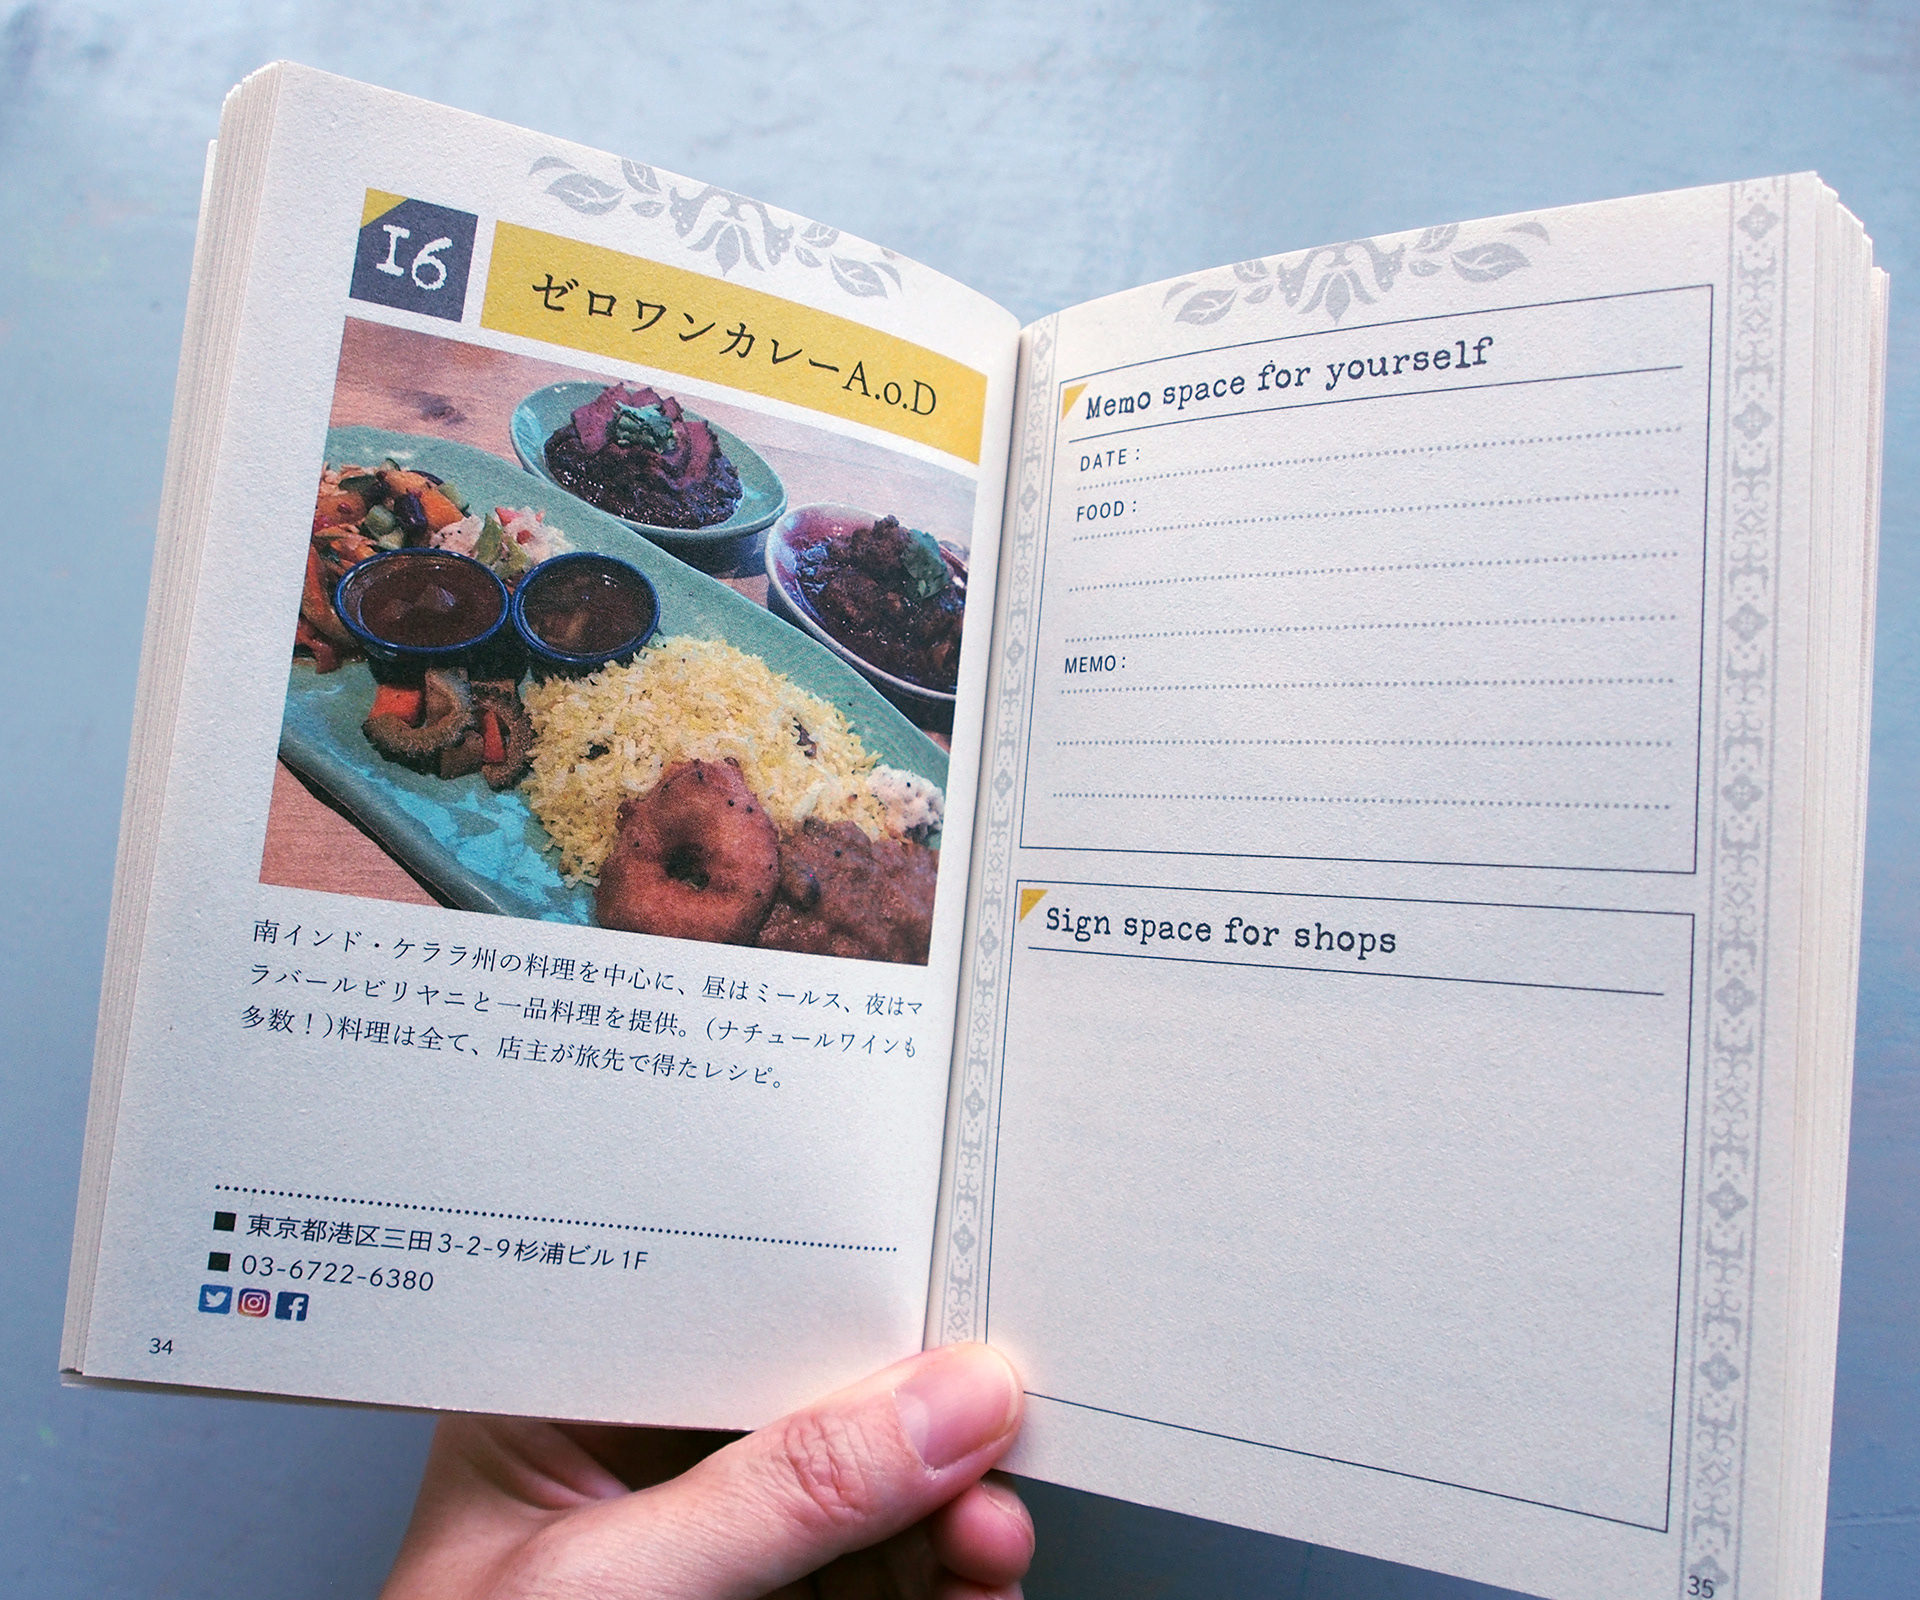 16
ゼロワンカレーA.o.D
南インド・ケララ州の料理を中心に、昼はミールス、夜はマ
ラバールビリヤニと一品料理を提供。(ナチュールワインも
多数！)料理は全て、店主が旅先で得たレシピ。
■ 東京都港区三田3-2-9杉浦ビル1F
■ 03-6722-6380
34
Memo space for yourself
DATE：
FOOD：
MEMO：
Sign space for shops
35